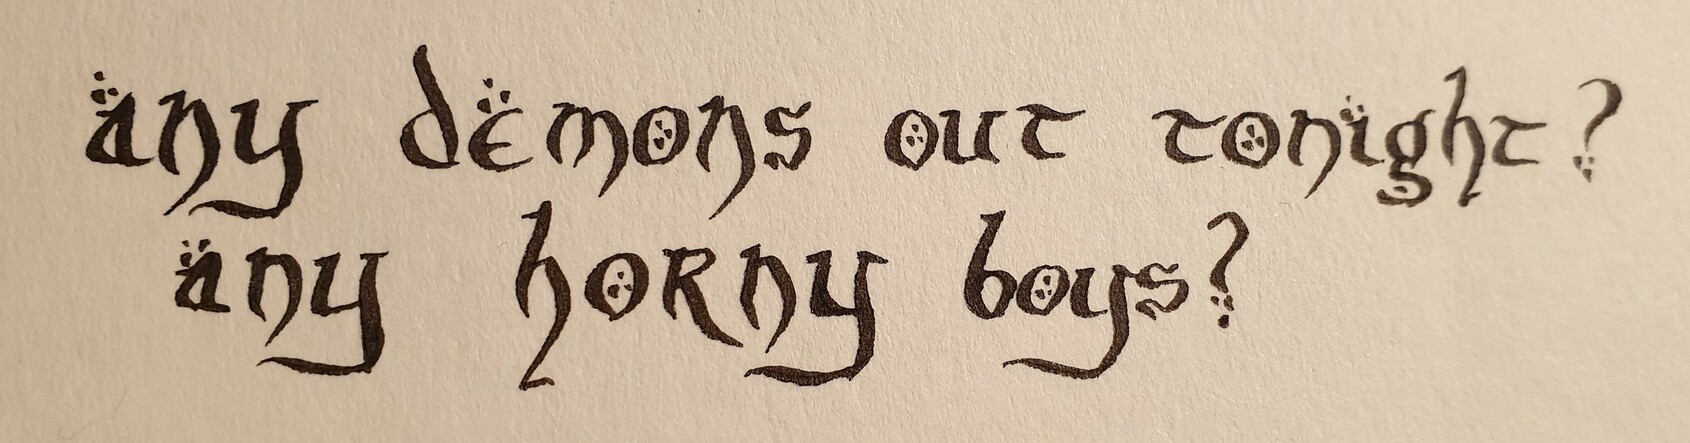 any demons out tonight?
any horny boys?